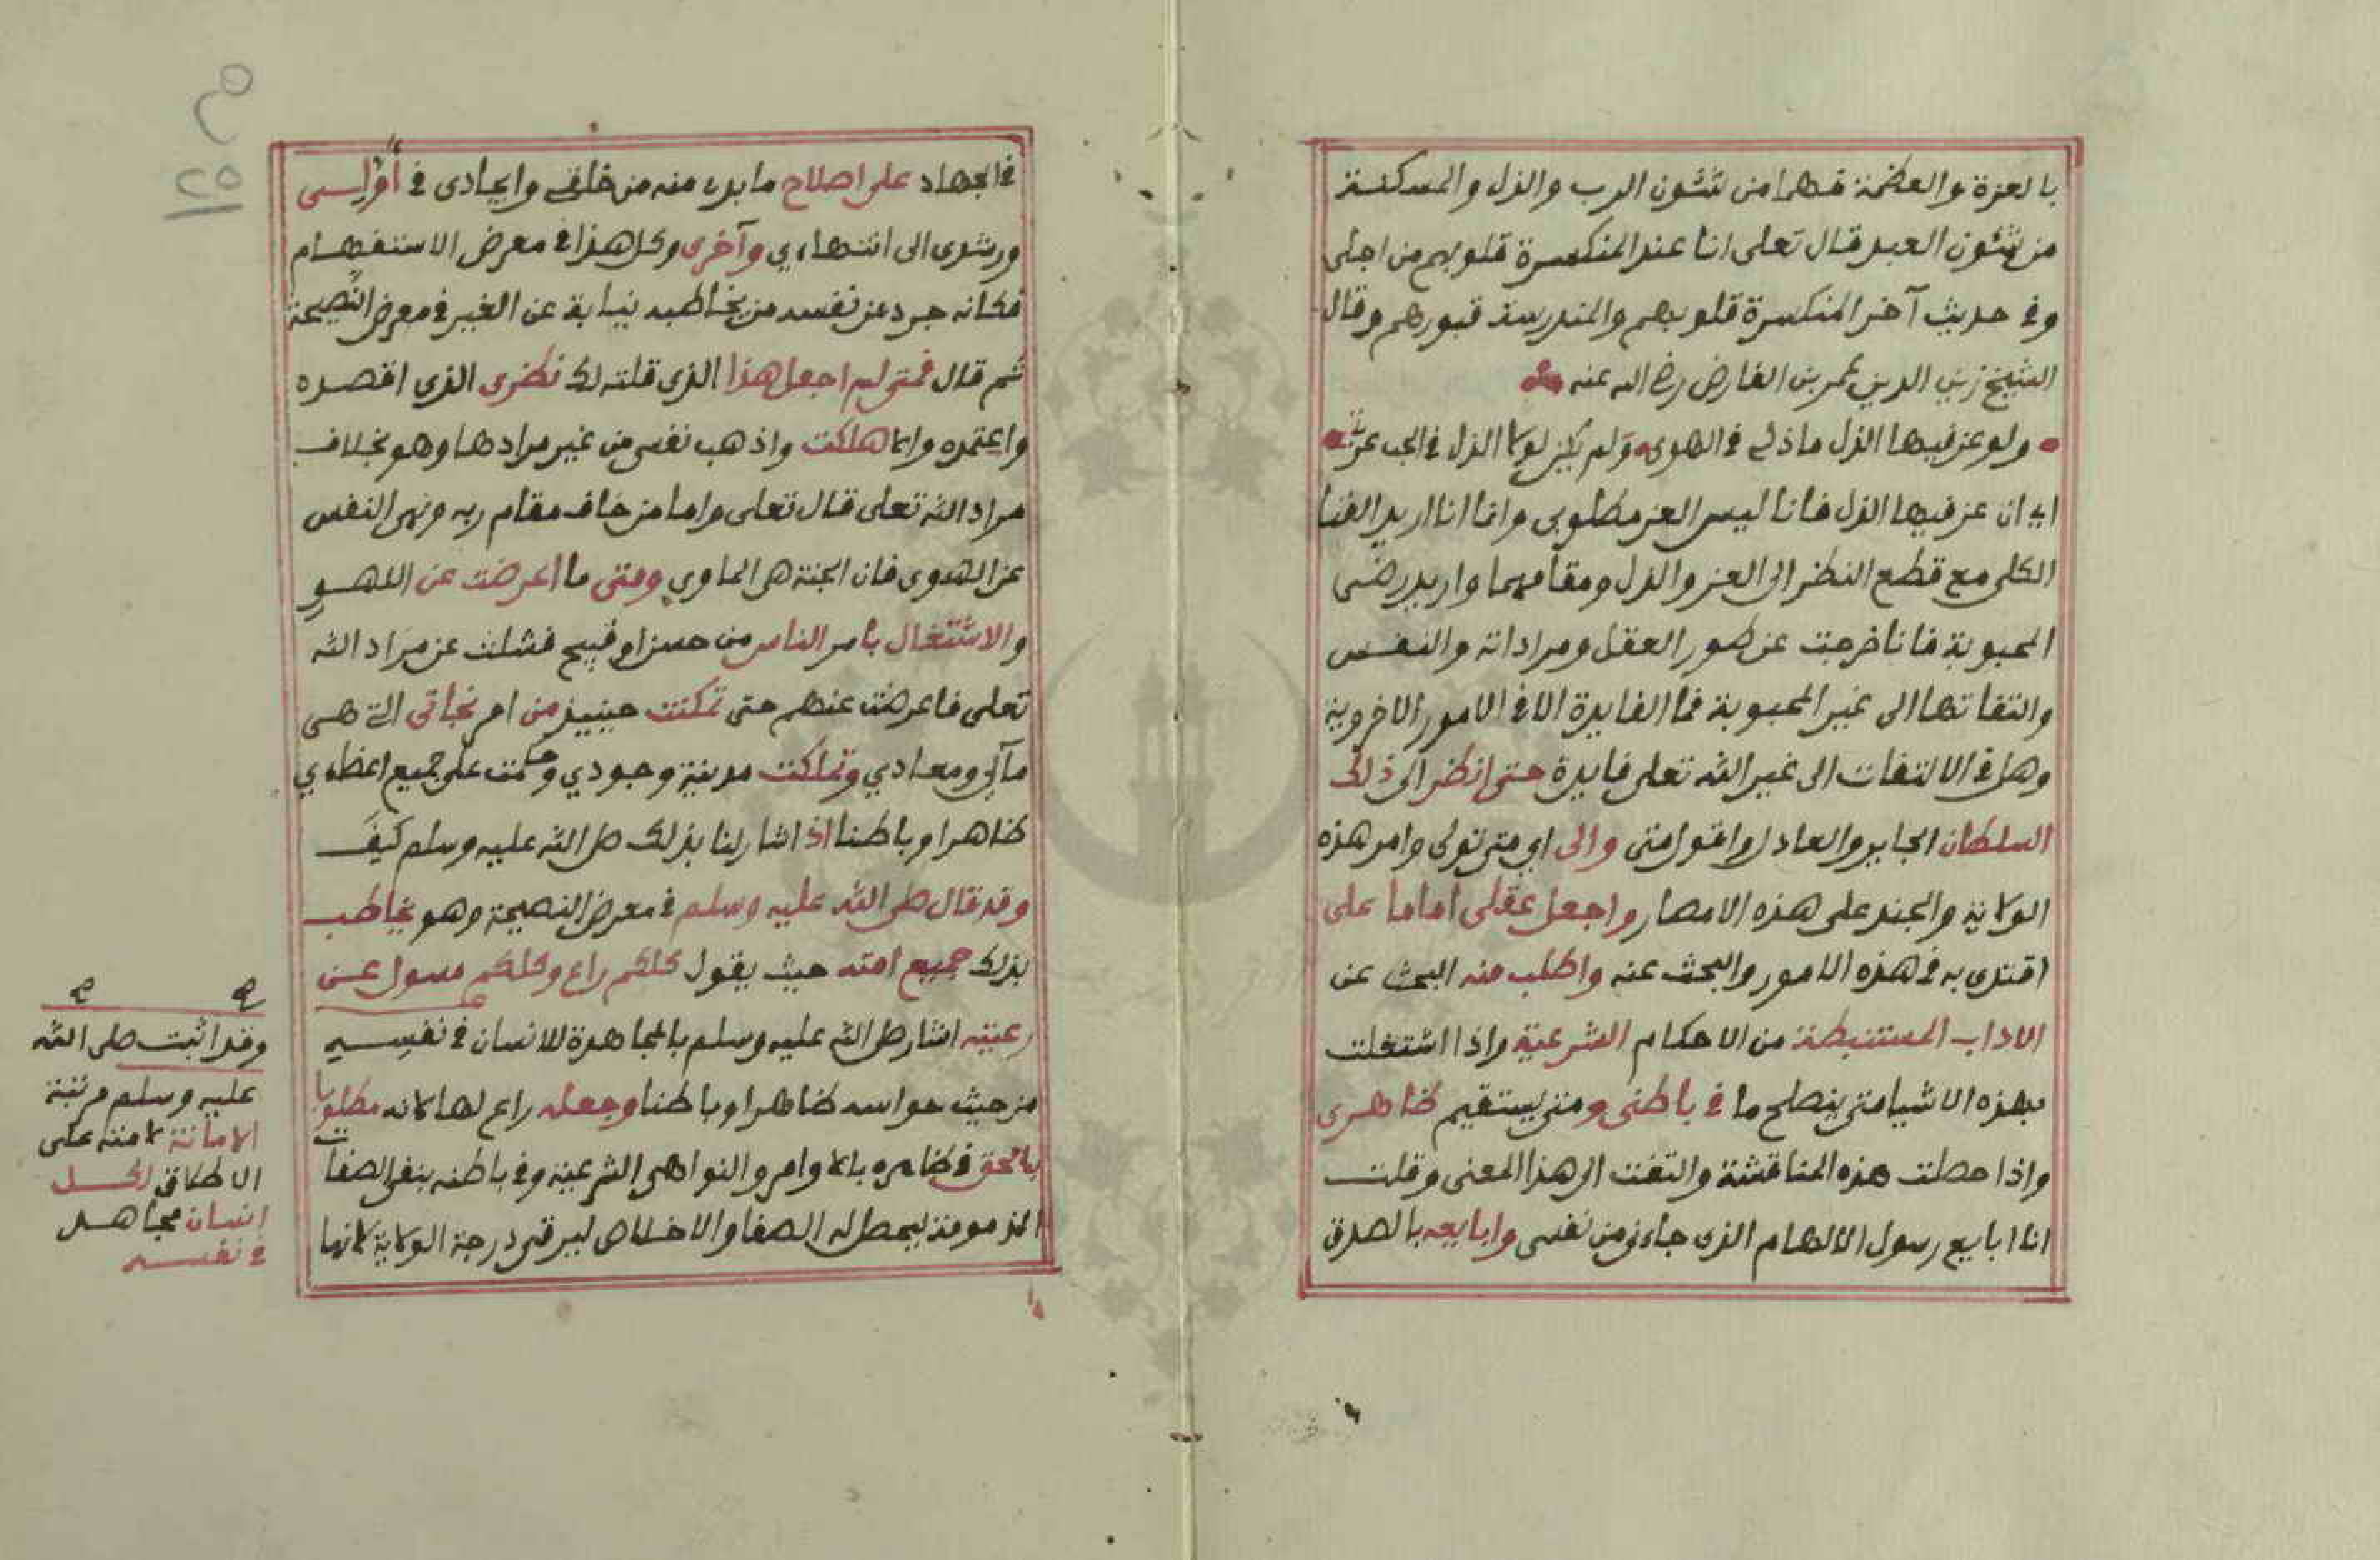 بالعزة والعظمة فهما من شئون الرب والذل والمسكنة
من شئون العبد قال تعلى انا عند المنكسرة قلوبهم من اجلى
وفى حديث آخر المنكسرة قلوبهم والمندرسة قبورهم وقال
الشيخ زين الدين عمر بن الفارض رضى الله عنه
ولو عز فيها الذل ما ذلى فى الهوى ولم يكن لولا الذل فى الحب عزتى
اى ان عز فيها الذل فانا ليس العز مطلوبى وانما انا اريد الفنا
الكلى مع قطع النظر الى العز والذل ومقامهما واريد رضى
المحبوبة فانا خرجت عن طور العقل ومراداته والنفس
والتفاتها الى غير المحبوبة فما الفايدة الا فى الامور الاخروية
وهل فى الالتفات الى غير الله تعلى فايدة حتى انظر الى ذلك
السلطان الجاير والعادل واقول متى والى اي متى تولى وامر هذه
الولاية والجند على هذه الامصار واجعل عقلى اماما على
اقتدى به فى هذه الامور والبحث عنه واطلب منه البحث عن
الاداب المستنبطة من الاحكام الشرعية واذا اشتغلت
بهذه الاشيا متى ينصلح ما فى باطنى ومتى يستقيم ظاهرى
واذا حصلت هذه المناقشة والتفت الى هذا المعنى وقلت
انا ابايع رسول الالهام الذى جاءنى من نفسى وابايعه بالصدق
٢٥
فى الجهاد على اصلاح ما بدء منه من خلقى وايجادى فى
ورشدى الى انتهاءي وآخرى وكل هذا فى معرض الاستفهام
فكانه جرد عن نفسه من يخاطبه نيابة عن الغير فى معرض النصيحة
ثم قال فمتى لم اجعل هذا الذى قلته لك نظرى الذى اقصده
واعتمده والا هلكت واذهب نفسى من غير مرادها وهو بخلاف
مراد الله تعلى قال تعلى واما من خاف مقام ربه ونهى النفس
عن الهوى فان الجنة هى الماوي ومتى ما اعرضت عن اللهو
والاشتغال بأمر الناس من حسن او قبيح فشلت عن مراد الله
تعلى فاعرضت عنهم حتى تمكنت حينيذ من امر نجاتى التى هى
مآلى ومعادي وتملكت مدينة وجودي وحكمت على جميع اعظاءي
ظاهرا وباطنا اذ اشار لنا بذلك صلى الله عليه وسلم كيف
وقد قال صلى الله عليه وسلم فى معرض النصيحة وهو يخاطب
بذلك جميع امته حيث يقول كلكم راع وكلكم مسول عن
رعيته اشار صلى الله عليه وسلم بالمجاهدة للانسان فى نفسه
من حيث حواسه ظاهرا وباطنا وجعله راع لها لانه مطلوبا
بالحق فظاهره بالاوامر والنواهى الشرعية وفى باطنه بنفى الصفات
المذمومة ليحصل له الصفا والاخلاص ليرقى درجة الولاية لانها
وقد اثبت صلى الله
عليه وسلم مرتبة
الامانة لامته على
الاطلاق لكل
انسان مجاهد
فى نفسه